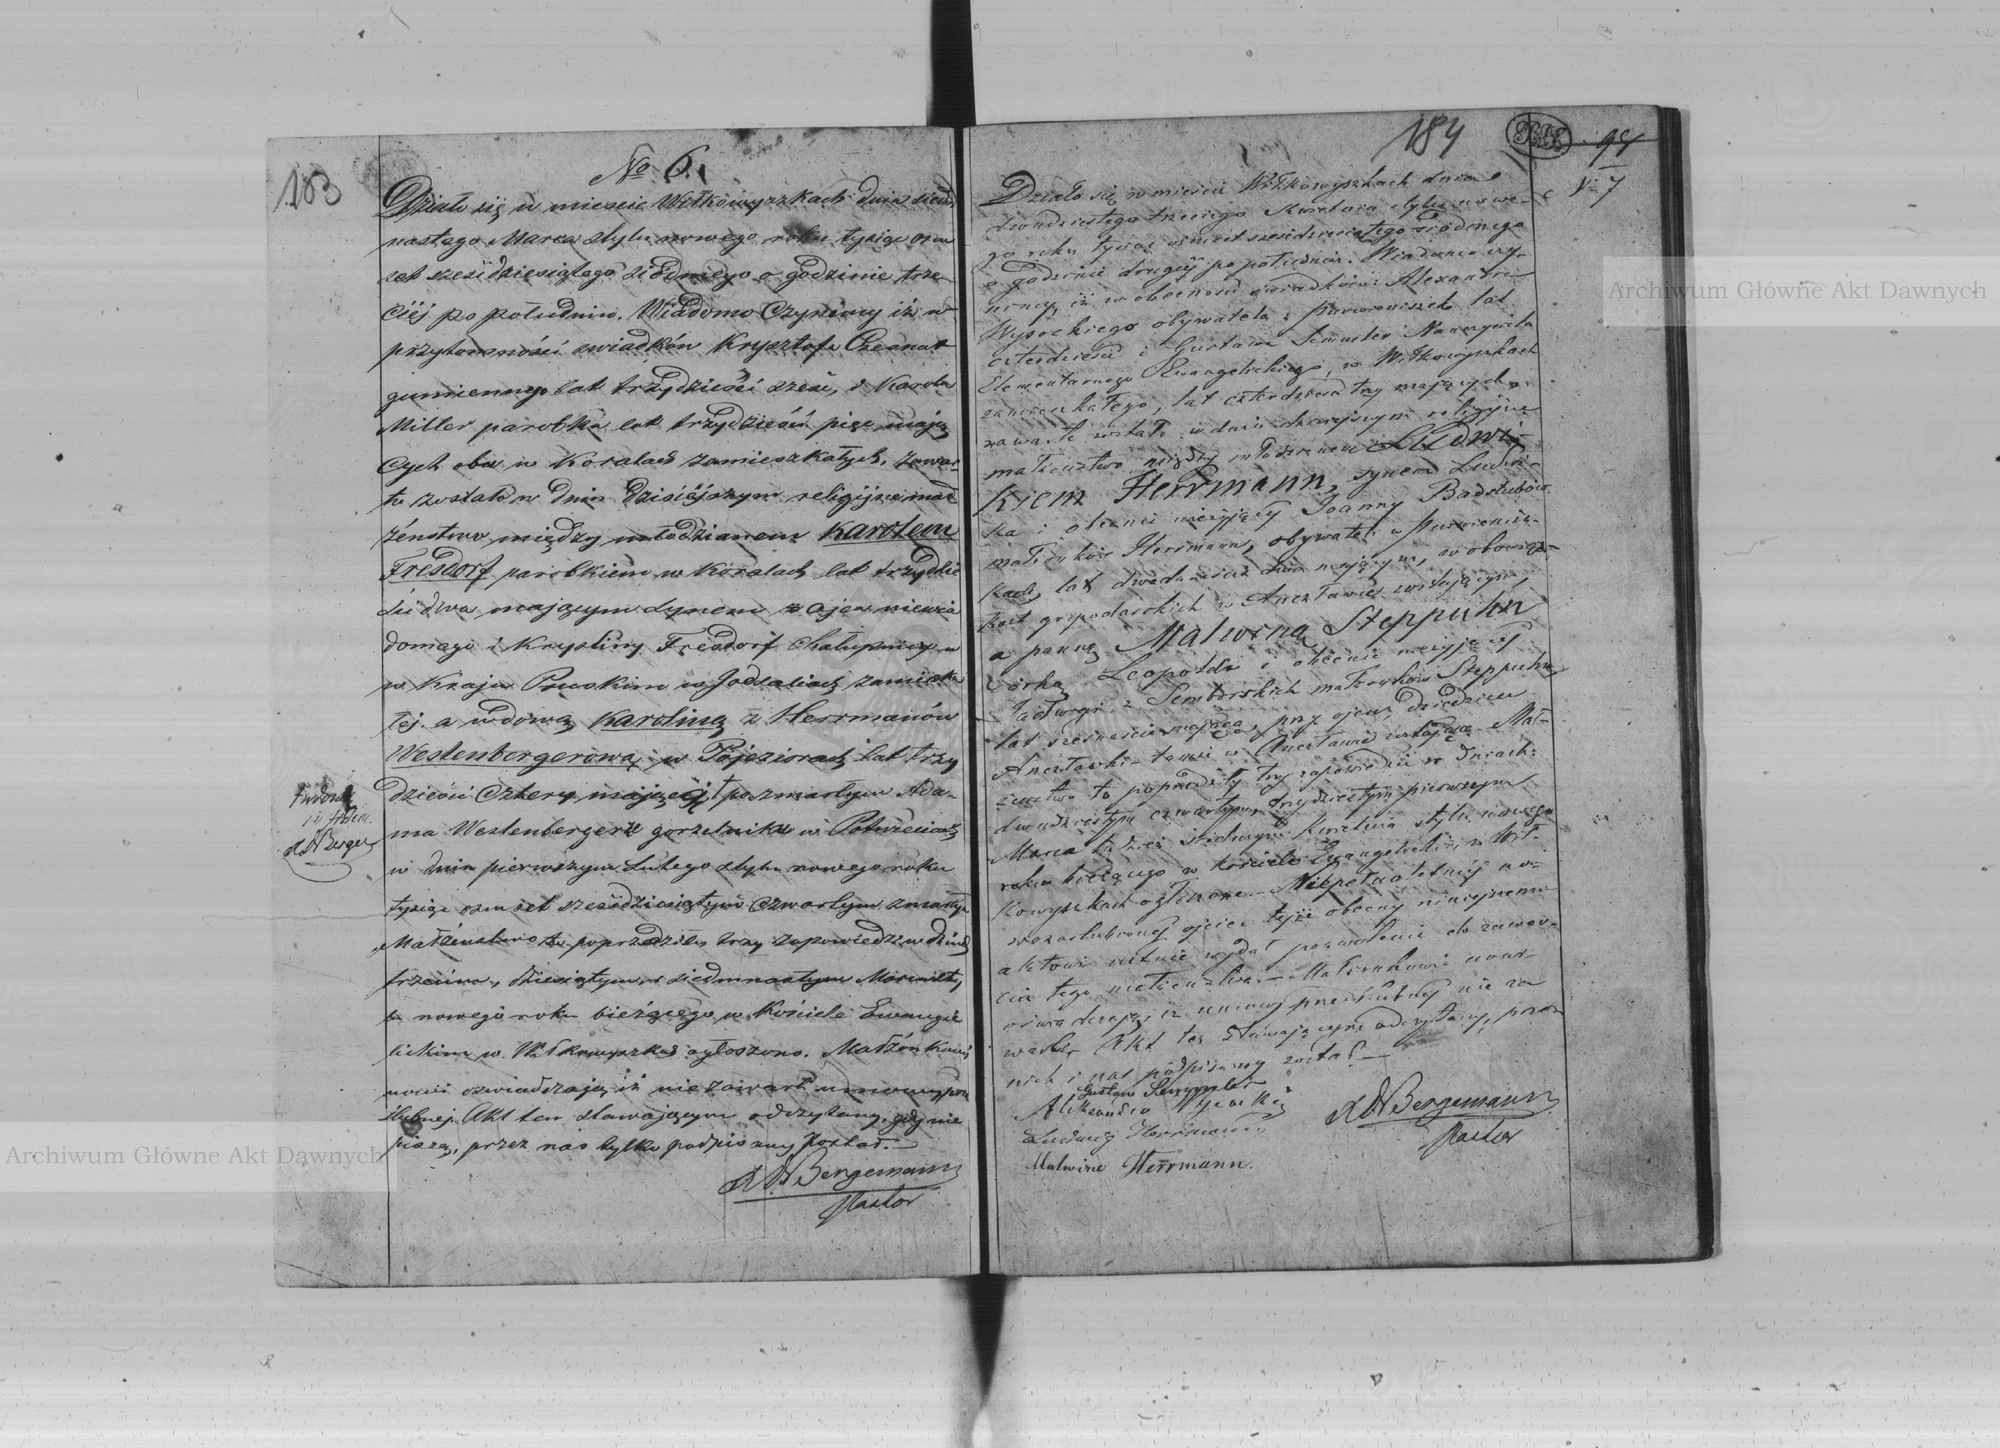 183
No 6.
Działo się w mieście Wełkowyszkach dnia siedm
nastego Marca stylu nowego roku tysiąc osm
set sześćdziesiątego siódmego o godzinie trze
ciéj po południu. Wiadomo Czynimy iż w
przytomności swiadków Krysztofa
gumiennego lat trzydzieści sześć, i Karola
Miller parobka lat trzydzieści pięć mają
cych obu w Koralach zamieszkałych, zawar
te zostało w dniu dzisiéjszym religijne mał
żeństwo między młodzianem Karolem
Fresdorf parobkiem w Koralach lat trzydzie
ści dwa mającym synem z ojca niewia
domego i Krystiny Fresdorf Chałupnicy w
w Kraju Pruskim w zamieszka
łej. a wdową Karoliną z Herrmanów
Westenbergerową w Pojeziorach lat trzy
dzieści cztery mającej † po zmarłym Ada-
ma Westenbergerze gorzelniku w
w dniu pierwszym Lutego stylu nowego roku
tysiąc osm set sześćdziesiątym czwartym zmarłym
Małżeństwo to poprzedziły trzy zapowiedzi w dniach
trzecim, dziesiątym, i siedmnastym Marca sty
lu nowego roku bieżącego w Kościele Ewangie
lickim w Wiłkowyszkach ogłoszone. Małżonkowie
nowi oswiadczają iż nie zawarli umowy prze
ślubnej. Akt ten stawającym odczytany, gdy nie
piszą, przez nas tylko podpisany został.
Bergemann
Pastor
† wdową
184
98
No 7
Działo się w mieście Wiłkowyszkach dnia
dwudziestego trzeciego Kwietnia stylu nowe-
go roku tysiąc ośmset sześćdziesiątego siódmego
o godzinie drugiéj po południu. Wiadomo czy-
nimy, iż w obecności świadków Alexandra
Wysockiego obywatela z lat
czterdzieści i Gustawa Semmler Nauczyciela
Elementarnego Ewangelickiego, w Wiłkowyszkach
zamieszkałego, lat czterdzieści trzy mających
zawarte zostało w dniu dzisiejszym religijne
małżeństwo między młodzianem Ludwi-
kiem Herrmann, synem Ludwi-
ka i obecnie nieżyjącej Joanny
małżonków Herrmann, obywateli w
kach, lat dwadzieścia dwa mającym, w obowiąz-
kach gospodarskich w zostającym,
a panną Malwiną Steppuhn
córką Leopolda i obecnie nieżyjącej
Jadwigi z małżonków Steppuhn
lat szesnaście mającą, przy ojcu, dziedzicu
tamże w zostającą. Mał-
żeństwo to poprzedziły trzy zapowiedzi w dniach:
dwudziestym czwartym, trzydziestym pierwszym
Marca tudzież siódmym Kwietnia stylu nowego
roku bieżącego w kościele Ewangelickim w Wił-
kowyszkach ogłoszone. Niepełnoletniéj no-
wozaślubionej ojciec tejże obecny niniejszemu
aktowi ustnie wydał pozwolenie do zawar-
cia tego małżeństwa. Małżonkowie nowi
oświadczają, iż umowy przedślubnéj nie za
warli. Akt ten stawającym odczytany, przez
nich i nas podpisany został.
Gustaw Semmler
Aleksander Wysocki
Ludwig Herrmann
Malwine Herrmann.
Bergemann
Pastor
Archiwum Główne Akt Dawnych
Archiwum Główne Akt Dawnych